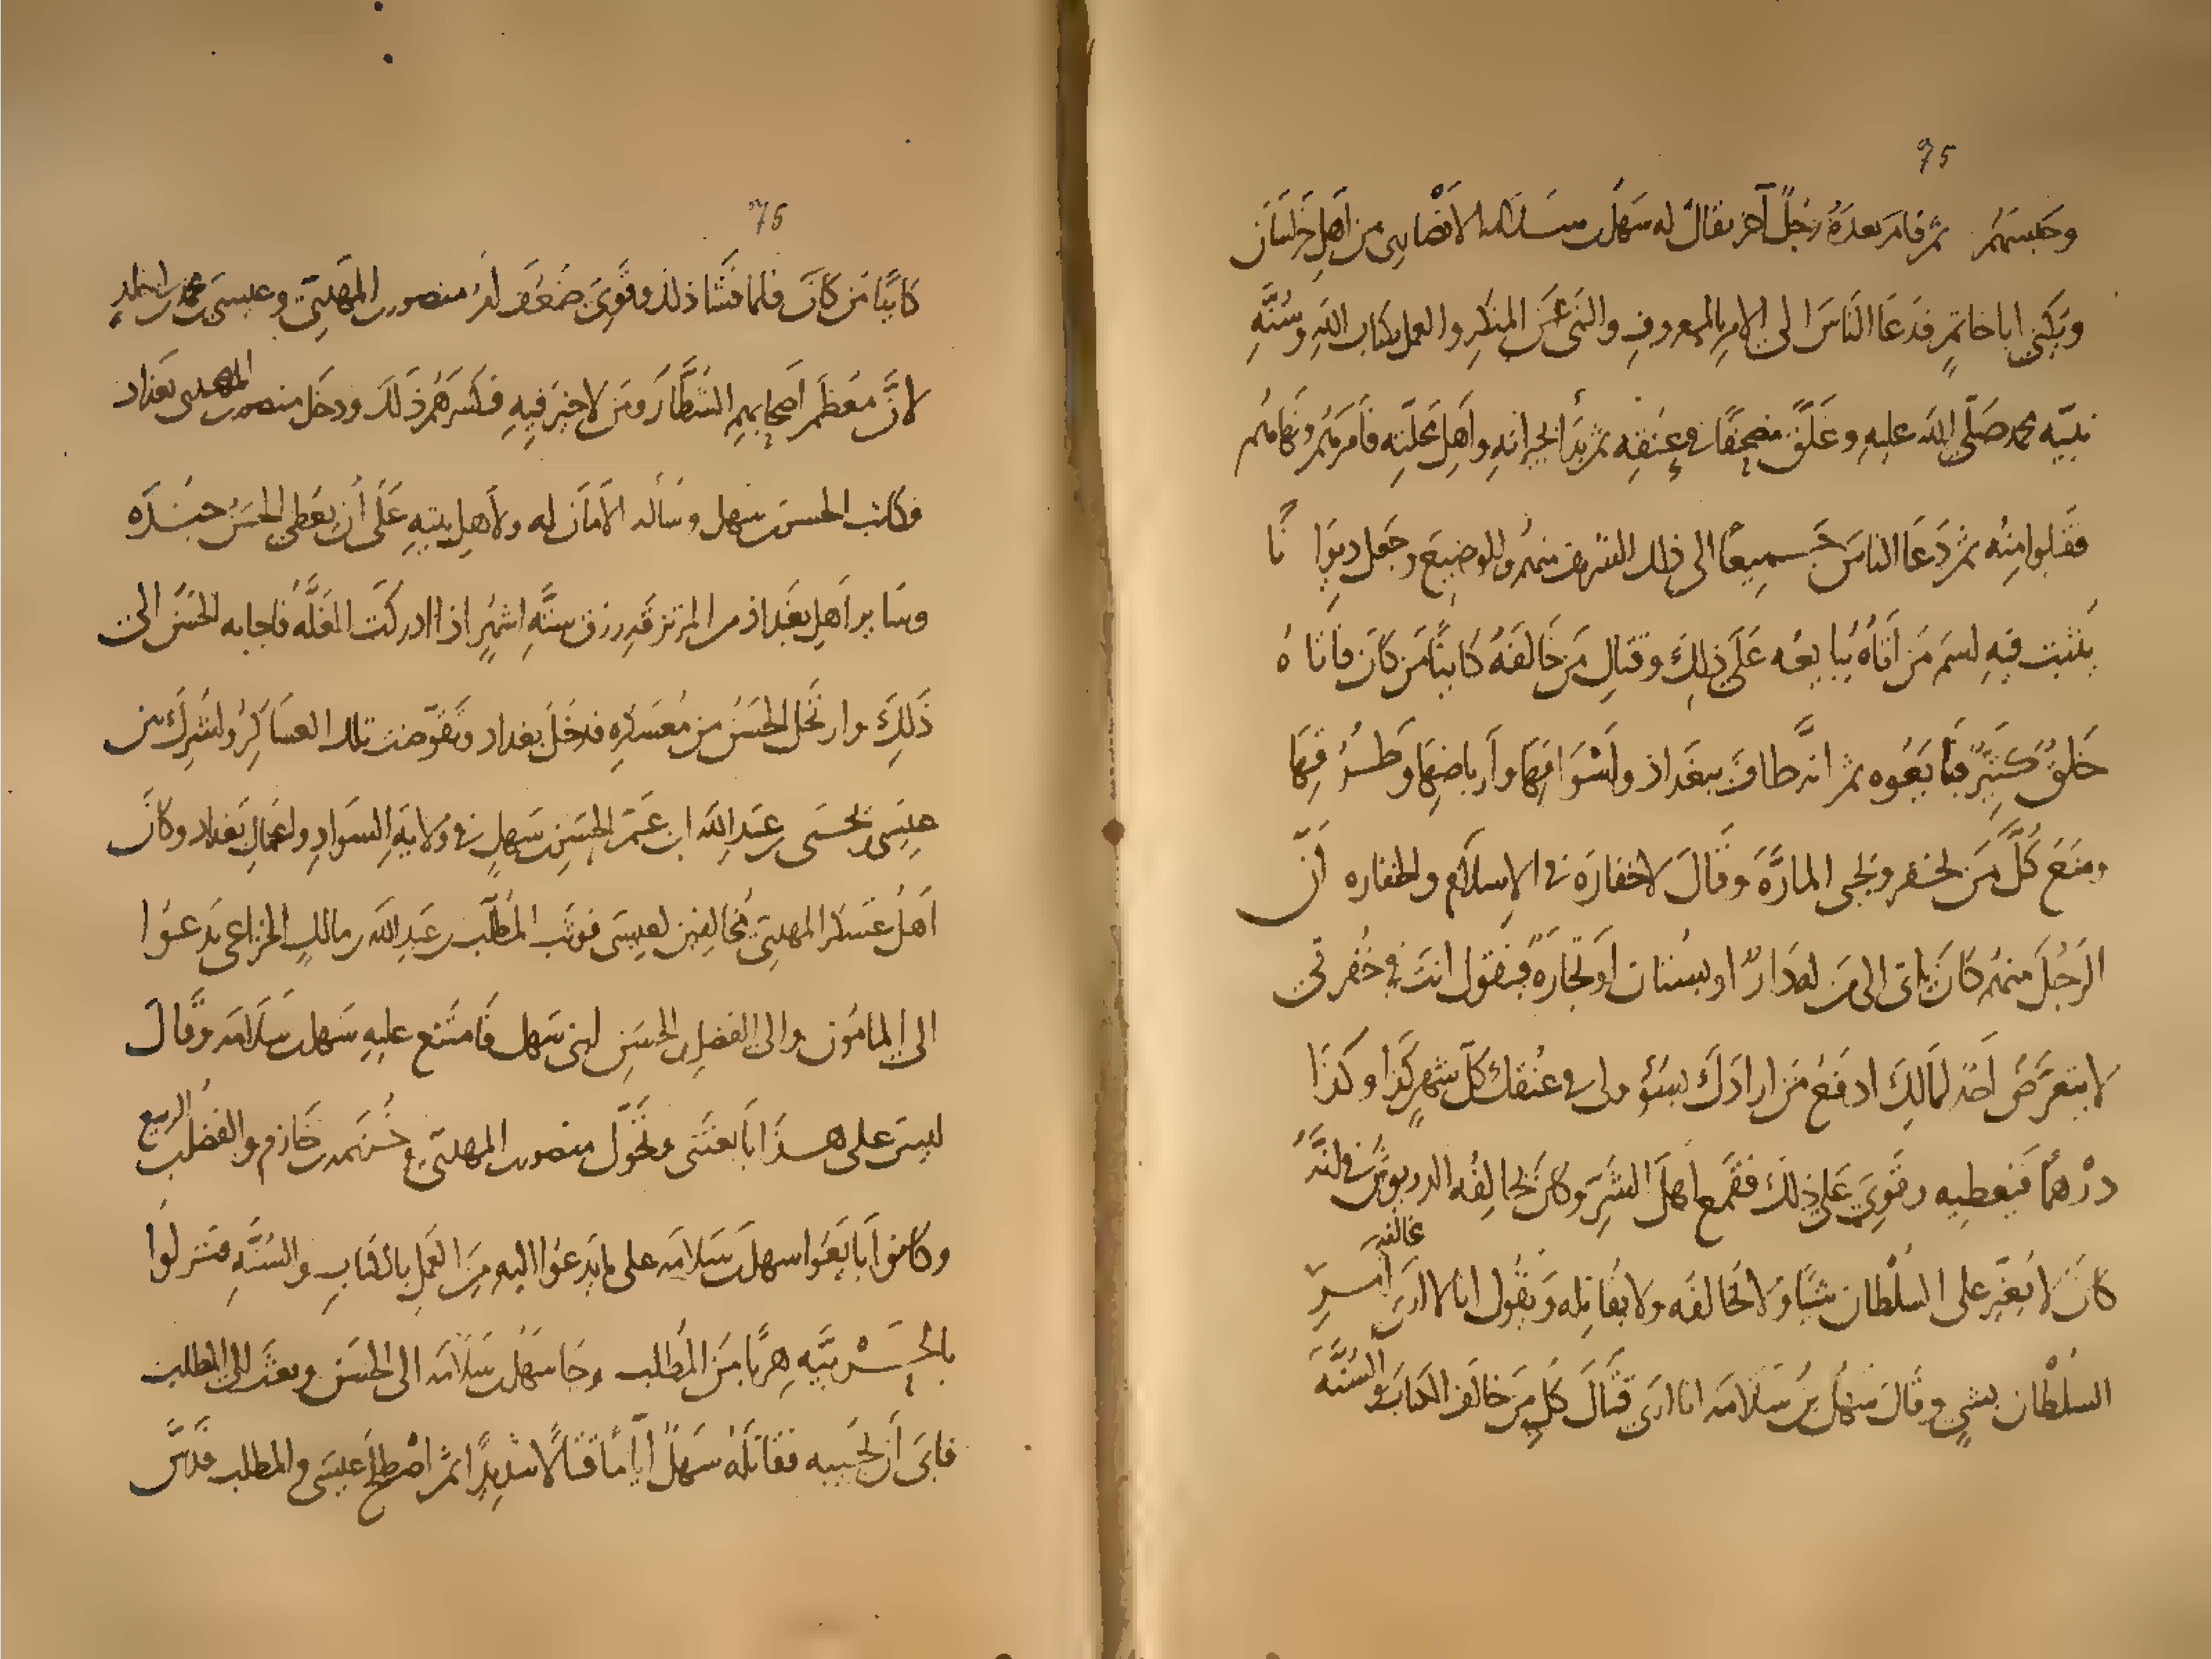 75
وحبسهم ثم قام بعده رجل آخر يقال له سهل بن سلامه الانصاري من اهل خراسان
ويكنى ابا حاتم فدعا الناس الى الامر بالمعروف والنهي عن المنكر والعمل بكتاب الله وسنّة
نبيّه محمد صلّى الله عليه وعلّق مصحفًا في عنقه ثم بدأ بجيرانه واهل محلّته فأمرهم ونهاهم
فقبلوا منه ثم دعا الناس جميعًا الى ذلك الشريف منهم والوضيع وجعل ديوانًا
يثبت فيه اسم من أتاه يبايعه على ذلك وقتال من خالفه كائنًا من كان فاتاه
خلق كثير فبايعوه ثم انّه طاف ببغداذ واسواقها وأرباضها وطرقها
ومنع كلّ من يخفر ويجبي المارّة وقال لا خفارة في الإسلام والخفاره أنّ
الرجل منهم كان ياتي الى من له دار او بستان أو تجارة فيقول انت في خفرتي
لا يتعرّض احد لمالك ادفع من ارادك بسوء ولي في عنقك كلّ شهر كذا وكذا
درهمًا فيعطيه وقوي على ذلك فقمع اهل الشرّ وكان يخالفه الدريوش في انّه
كان لا يغيّر على السلطان شيًا ولا يخالفه ولا يقاتله ويقول انا لا ارى مخالفه امر
السلطان بشي وقال سهل بن سلامه انا ارى قتال كل من خالف الكتاب والسنّة
75
كائنًا من كان فلما فشا ذلك وقوي ضعف امر منصور بن المهديّ وعيسى بن محمد بن ابي خالد
لانّ معظم اصحابهم الشطّار ومن لا خير فيه فكسرهم ذلك ودخل منصور بن المهدي بغداد
فكاتب الحسن بن سهل وسأله الأمان له ولأهل بيته على أن يعطي الحسن جنده
وساير اهل بغداذ من المرتزقه رزق ستّة اشهر اذا ادركت الغلّة فاجابه الحسن الى
ذلك وارتحل الحسن من معسكره فدخل بغداد وتقوّضت تلك العساكر واشرك بين
عيسى ويحيى بن عبد الله ابن عمّ الحسن بن سهل في ولاية السواد واعمال بغداد وكان
اهل عسكر المهديّ مخالفين لعيسى فوثب المطّلب بن عبد الله بن مالك الخزاعي يدعوا
الى المامون والى الفضل والحسن ابني سهل فامتنع عليه سهل بن سلامه وقال
ليس على هذا بايعتني وتحوّل منصور بن المهديّ وخزيمه بن خازم والفضل بن الربيع
وكانوا بايعوا سهل بن سلامه على ما يدعوا اليه من العمل بالكتاب والسنّة فنزلوا
بالحربيّه هربًا من المطلب وجا سهل بن سلامه الى الحسن وبعث الى المطلب
فابى أن يجيبه فقاتله سهل ايّامًا قتالًا شديدًا ثم اصطلح عيسى والمطلب فدسّ